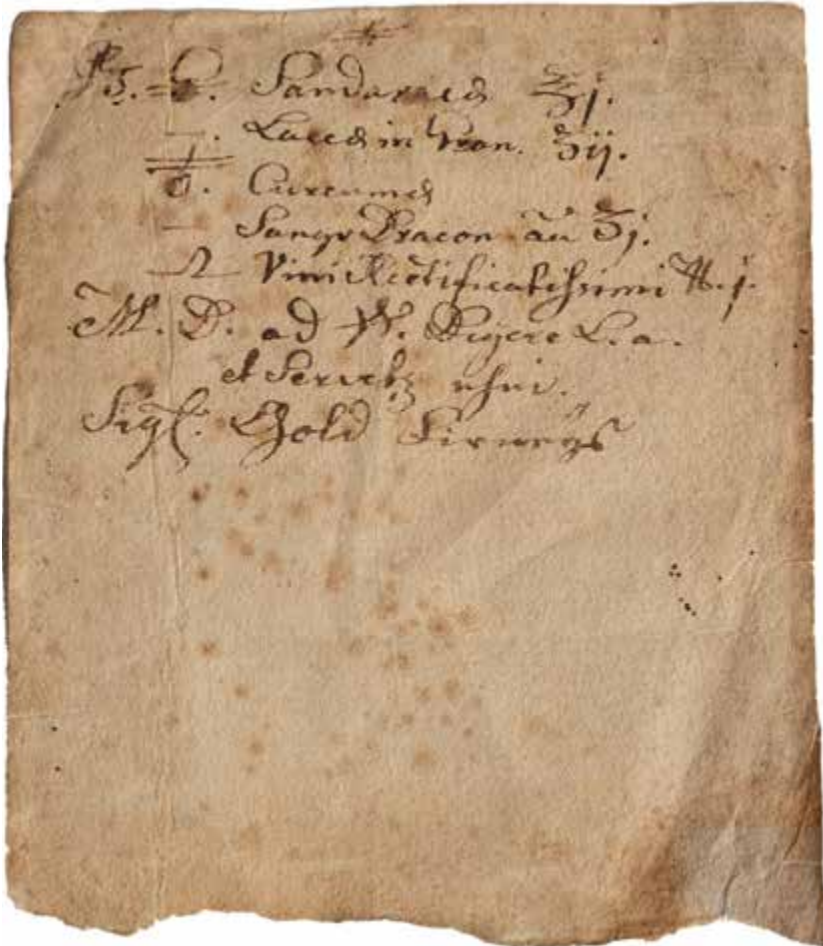 G. Sandaracæ ℥j.
—. Laccæ in Gran. ℥ij.
Curcumæ
— Sangv Dracon ãn ʒj.
Vini Rectificatissimi ℔.j.
M. D. ad Digere L. a.
et
Sigl. Gold Firneys